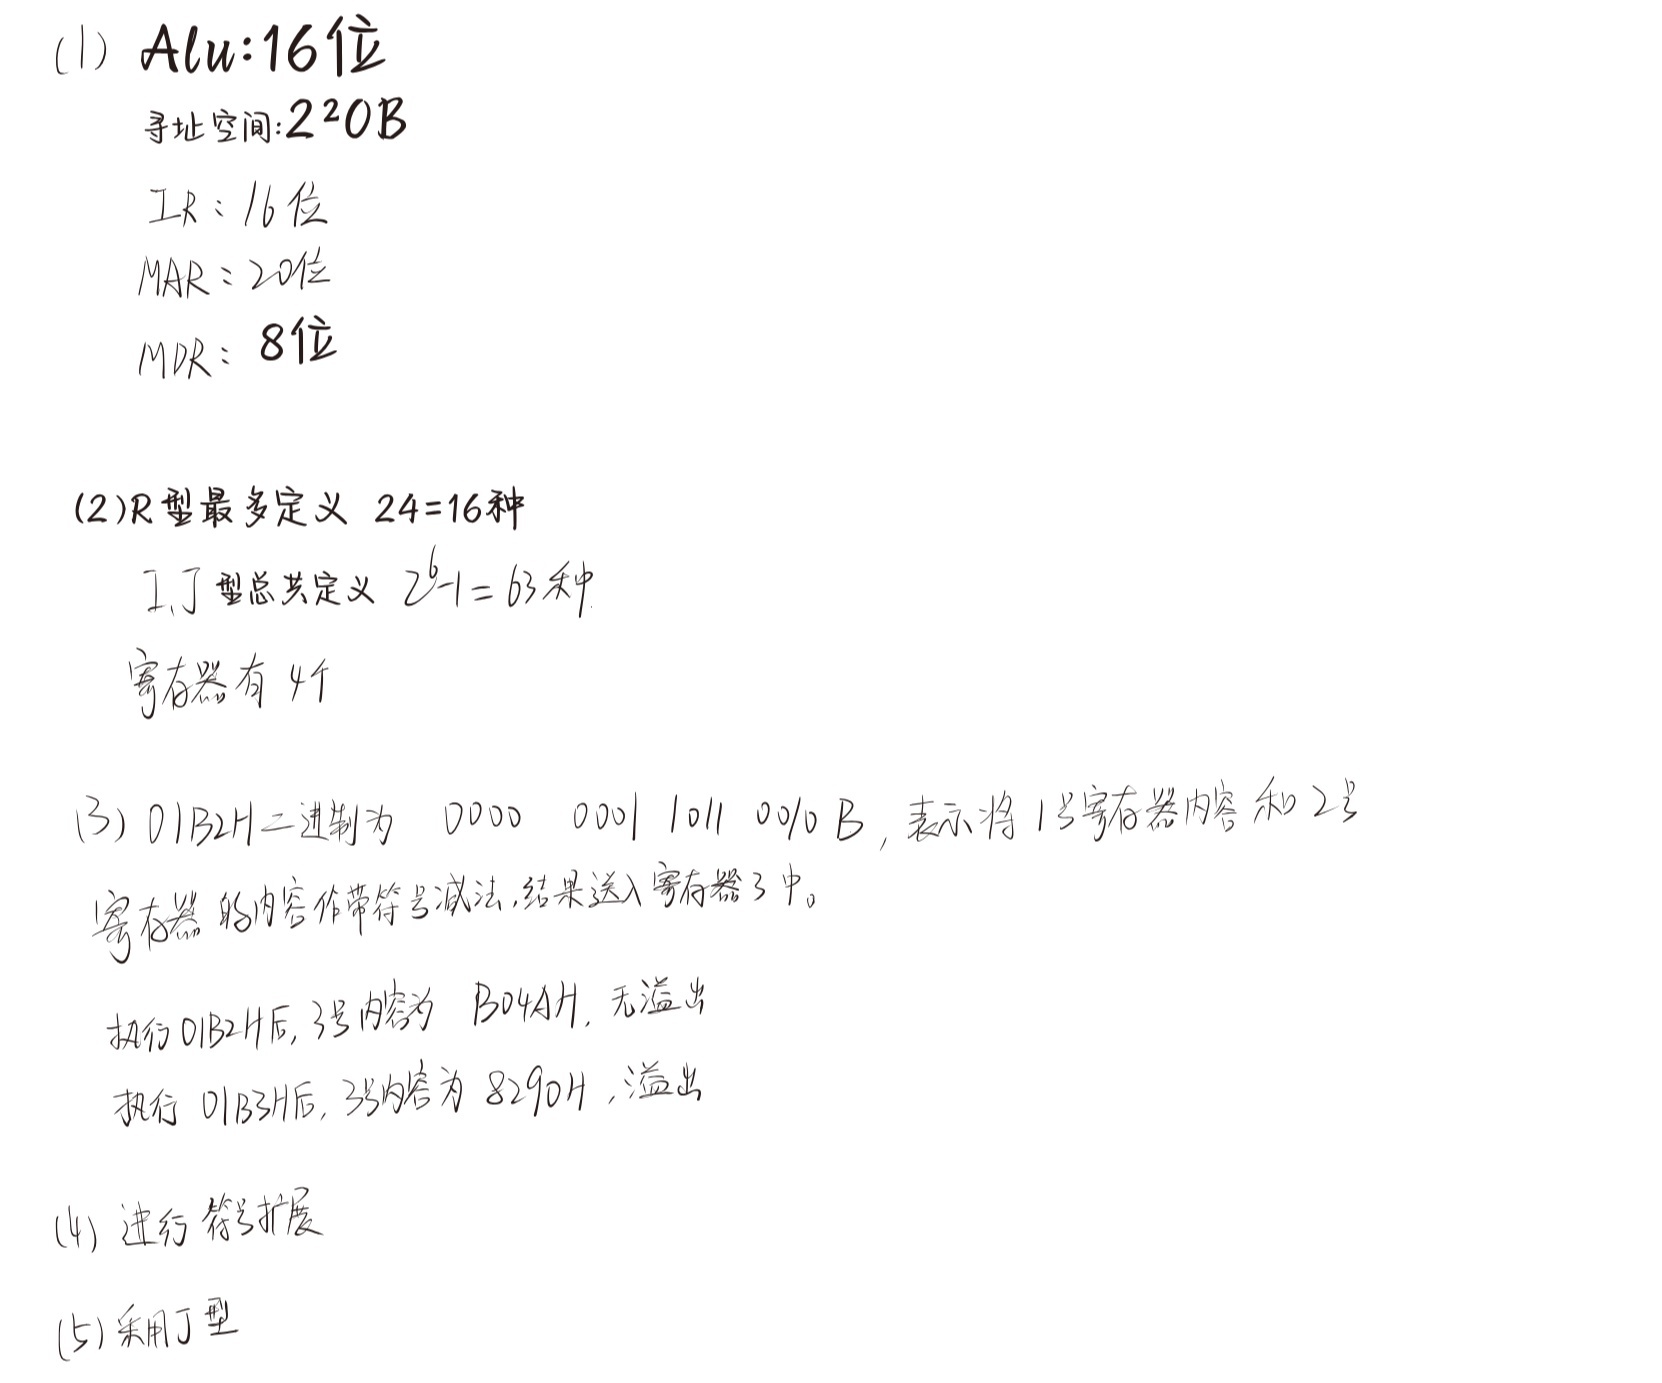 (1) Alu:16位
寻址空间:2²0B
IR:16位
MAR:20位
MDR: 8位
(2)R型最多定义 24=16种
I、J型总共定义 2⁶-1=63种.
寄存器有4个
(3) 01B2H二进制为 0000 0001 1011 0010 B, 表示将1号寄存器内容和2号
寄存器的内容作带符号减法,结果送入寄存器3中。
执行01B2H后,3号内容为 B04AH, 无溢出
执行 01B3H后, 3号内容为 8290H,溢出
(4) 进行符号扩展
(5)采用J型